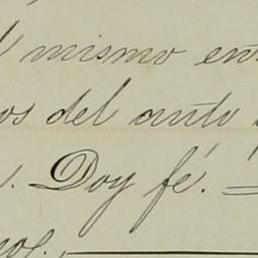 mismo en
os del auto
Doy fé.